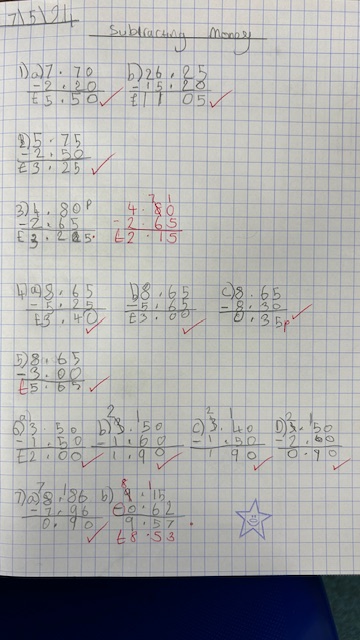 7/5/24
Subtracting Money
1)a)7.70 b)26.25
-2.20 -15.20
£5.50 £11.05
2)5.75
-2.50
£3.25
3)4.80p 4.80
-2.65 -2.65
£2.15
4)a)8.65 b)8.65 c)8.65
-5.25 -5.65 -8.30
£3.40 £3.00 0.35p
5)8.65
-3.00
£5.65
6)a)3.50 b)3.50 c)3.40 D)3.50
-1.50 -1.60 -1.50 -2.60
£2.00 1.90 1.90 0.90
7)a)8.86 b)9.15
-7.96 0.62
0.90 9.57
£8.53